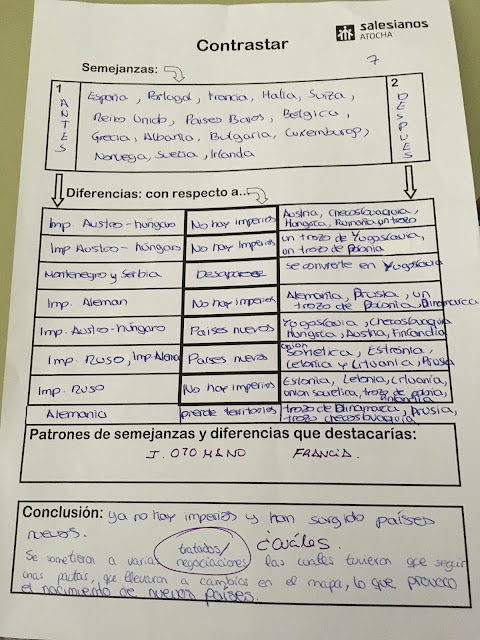 salesianos
ATOCHA
Contrastar
7
Semejanzas:
1
ANTES
España, Portugal, Francia, Italia, Suiza,
Reino Unido, Países Bajos, Bélgica,
Grecia, Albania, Bulgaria, Luxemburgo,
Noruega, Suecia, Irlanda
2
DESPUÉS
Diferencias: con respecto a...
Imp. Austro-húngaro
No hay imperios
Austria, Checoslovaquia,
Hungría, Rumanía, un trozo
Imp Austro-húngaro
No hay Imperios
un trozo de Yugoslavia,
un trozo de Polonia
Montenegro y Serbia
Desaparece
se convierte en Yugoslavia
Imp. Aleman
No hay imperios
Alemania, Prusia, un
trozo de Polonia, Dinamarca
Imp. Austro-húngaro
Países nuevos
Yugoslavia, Checoslovaquia
Hungría, Austria, Finlandia
Imp. Ruso, Imp Alemán
Países nuevos
unión
Sovietica, Estonia,
Letonia y Lituania, Prusia
Imp. Ruso
No hay imperios
Estonia, Letonia, Lituania,
union sovietica, trozo de Polonia,
Finlandia
Alemania
pierde territorios
trozo de Dinamarca, Prusia,
trozo checoslovaquia
Patrones de semejanzas y diferencias que destacarías:
I. OTOMANO FRANCIA.
Conclusión: ya no hay imperios y han surgido países
nuevos.
¿cuáles.
Se sometieron a varias tratados/
negociaciones las cuales tuvieron que seguir
unas pautas, que llevaron a cambios en el mapa, lo que provocó
el nacimiento de nuevos países.